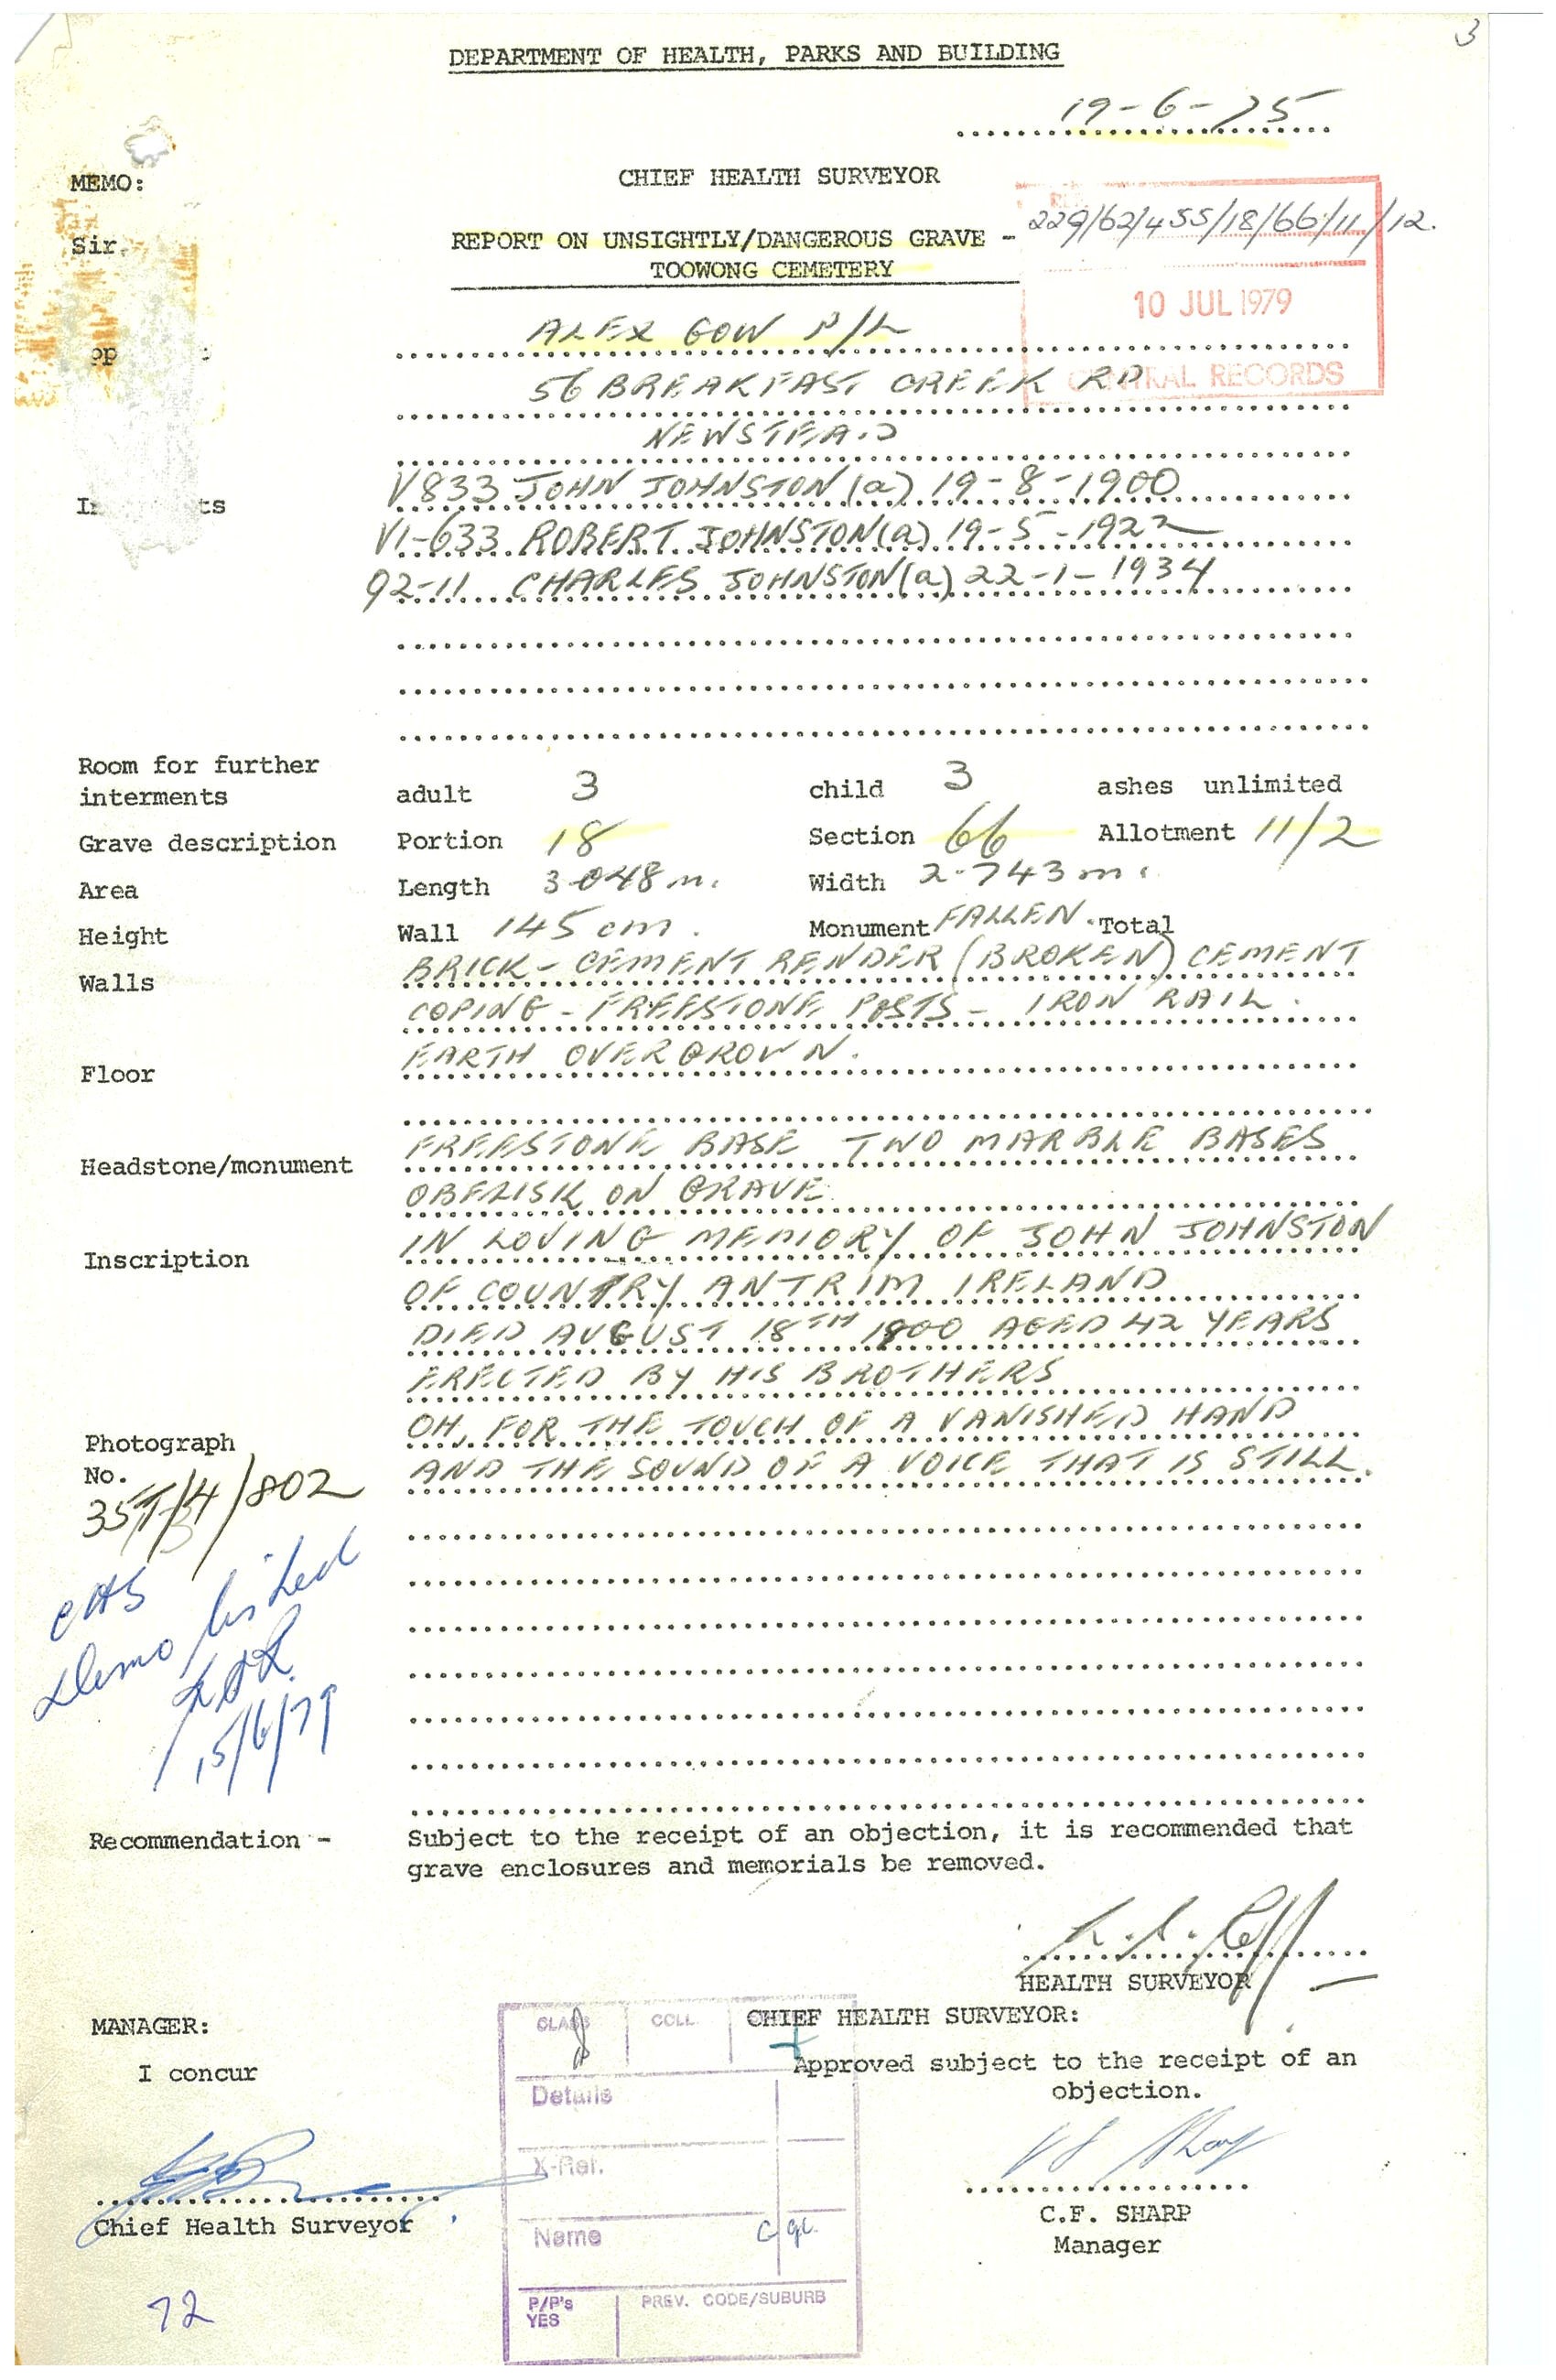 3
DEPARTMENT OF HEALTH, PARKS AND BUILDING
19-6-75
MEMO:
CHIEF HEALTH SURVEYOR
Sir,
REPORT ON UNSIGHTLY/DANGEROUS GRAVE - 229/62/455/18/66/11/12.
TOOWONG CEMETERY
10 JUL 1979
ALEX GOW P/L
56 BREAKFAST CREEK RD
CENTRAL RECORDS
NEWSTEAD
V833 JOHN JOHNSTON (a) 19-8-1900
VI-633 ROBERT JOHNSTON (a) 19-5-1922
92-11 CHARLES JOHNSTON (a) 22-1-1934
Room for further
interments adult 3 child 3 ashes unlimited
Grave description Portion 18 Section 66 Allotment 11/2
Area Length 3.048 m. Width 2.743 m.
Height Wall 145 cm. Monument FALLEN. Total
Walls BRICK - CEMENT RENDER (BROKEN) CEMENT
COPING - FREESTONE POSTS - IRON RAIL.
Floor EARTH OVERGROWN.
Headstone/monument FREESTONE BASE TWO MARBLE BASES
OBELISK ON GRAVE
Inscription IN LOVING MEMORY OF JOHN JOHNSTON
OF COUNTRY ANTRIM IRELAND
DIED AUGUST 18TH 1900 AGED 42 YEARS
ERECTED BY HIS BROTHERS
OH, FOR THE TOUCH OF A VANISHED HAND
AND THE SOUND OF A VOICE THAT IS STILL.
Photograph
No.
/4/802
CHS
Demolished
15/6/79
Recommendation - Subject to the receipt of an objection, it is recommended that
grave enclosures and memorials be removed.
HEALTH SURVEYOR
MANAGER:
CHIEF HEALTH SURVEYOR:
I concur
Approved subject to the receipt of an
objection.
CLASS COLL
Details
X-Ref.
Name
P/P's PREV. CODE/SUBURB
YES
Chief Health Surveyor
C.F. SHARP
Manager
72